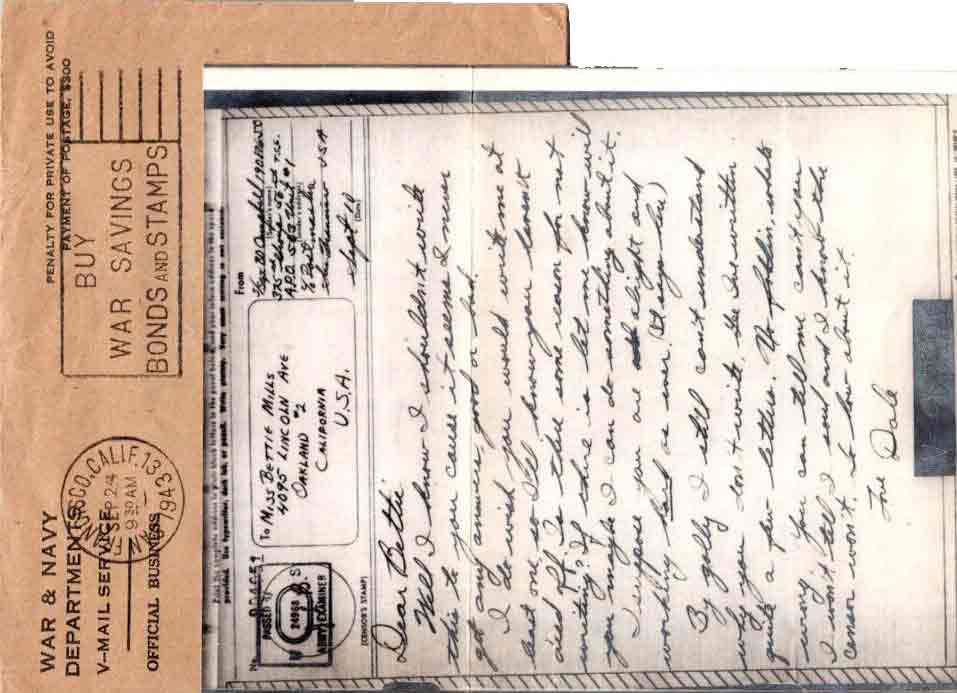 WAR & NAVY
DEPARTMENTS
V-MAIL SERVICE
OFFICIAL BUSINESS
CISCO, CALIF. 13
SEP 24
9 30 AM
1943
PENALTY FOR PRIVATE USE TO AVOID
PAYMENT OF POSTAGE, $300
BUY
WAR SAVINGS
BONDS AND STAMPS
No.
PASSED BY
U S
24968
ARMY EXAMINER
(CENSOR'S STAMP)
To Miss BETTIE MILLS
4095 LINCOLN AVE
OAKLAND #2
CALIFORNIA
U.S.A.
From
A.P.O. 502 Unit #1
c/o Postmaster
San Francisco USA
Sept 10
(Date)
Dear Bettie
Well I know I shouldn't write
this to you cause it seems I never
get any answers, good or bad.
I do wish you would write me at
least one so I'll know you haven't
died. Is there some reason for not
writing? If there is let me know will
you maybe I can do something about it.
I suppose you are alright and
working hard as ever. (At anyrate)
By golly I still can't understand
why you won't write. I've written
quite a few letters. Up, what's
wrong. You can tell me can't you
I won't tell a soul and I know the
censor won't. So how about it.
Love
Dale